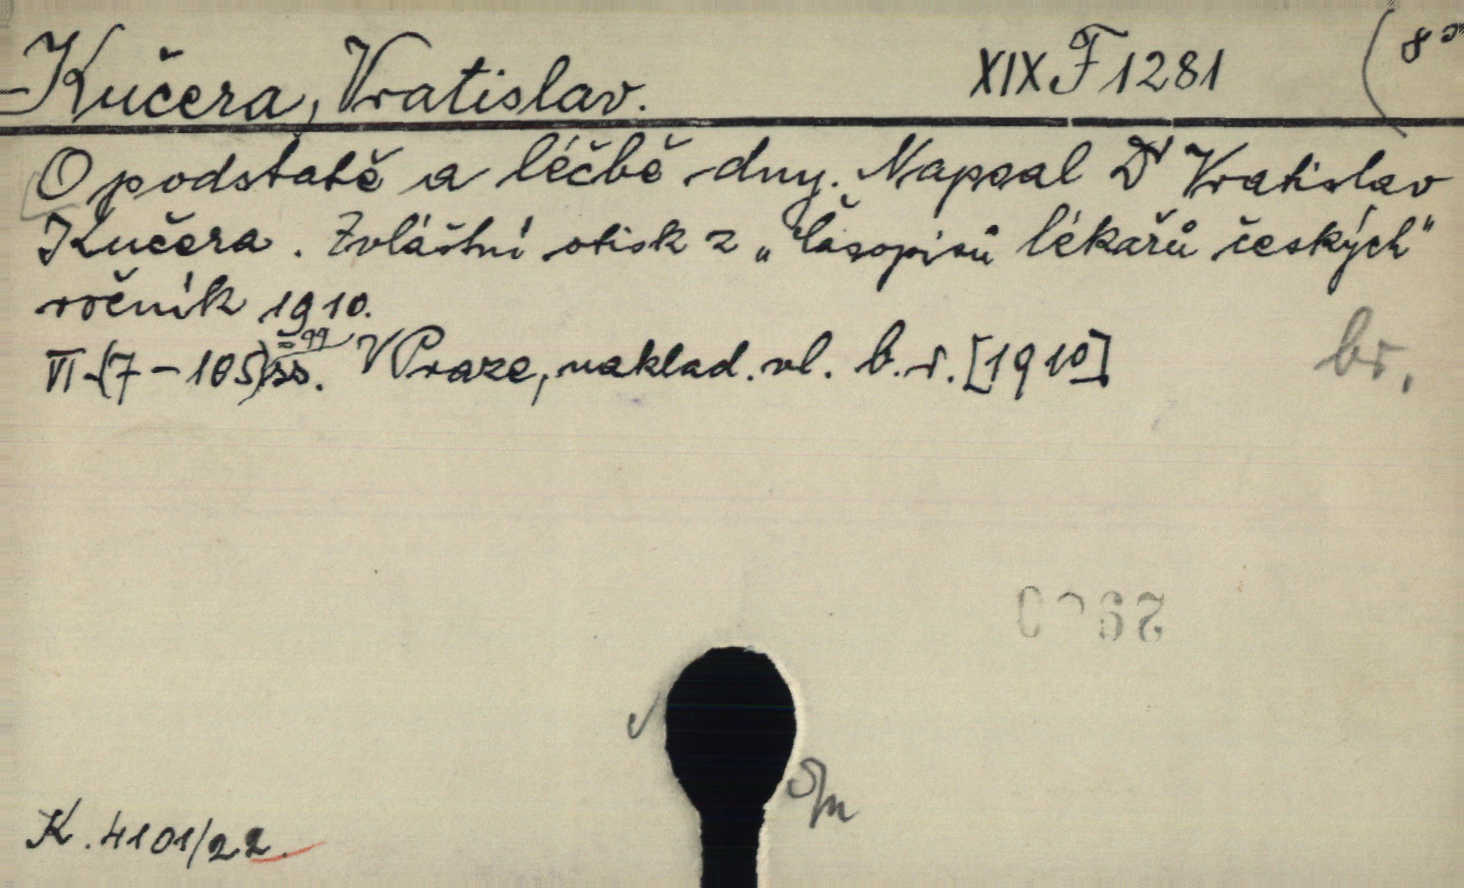 Kučera, Vratislav. XIX F 1281 (8°
O podstatě a léčbě dny. Napsal Dr Vratislav
Kučera. Zvláštní otisk z „Časopisů lékařů českých"
ročník 1910.
=99
VI-(7-105)ss. V Praze, naklad. vl. b. r. [1910]
br.
K. 4101/22.